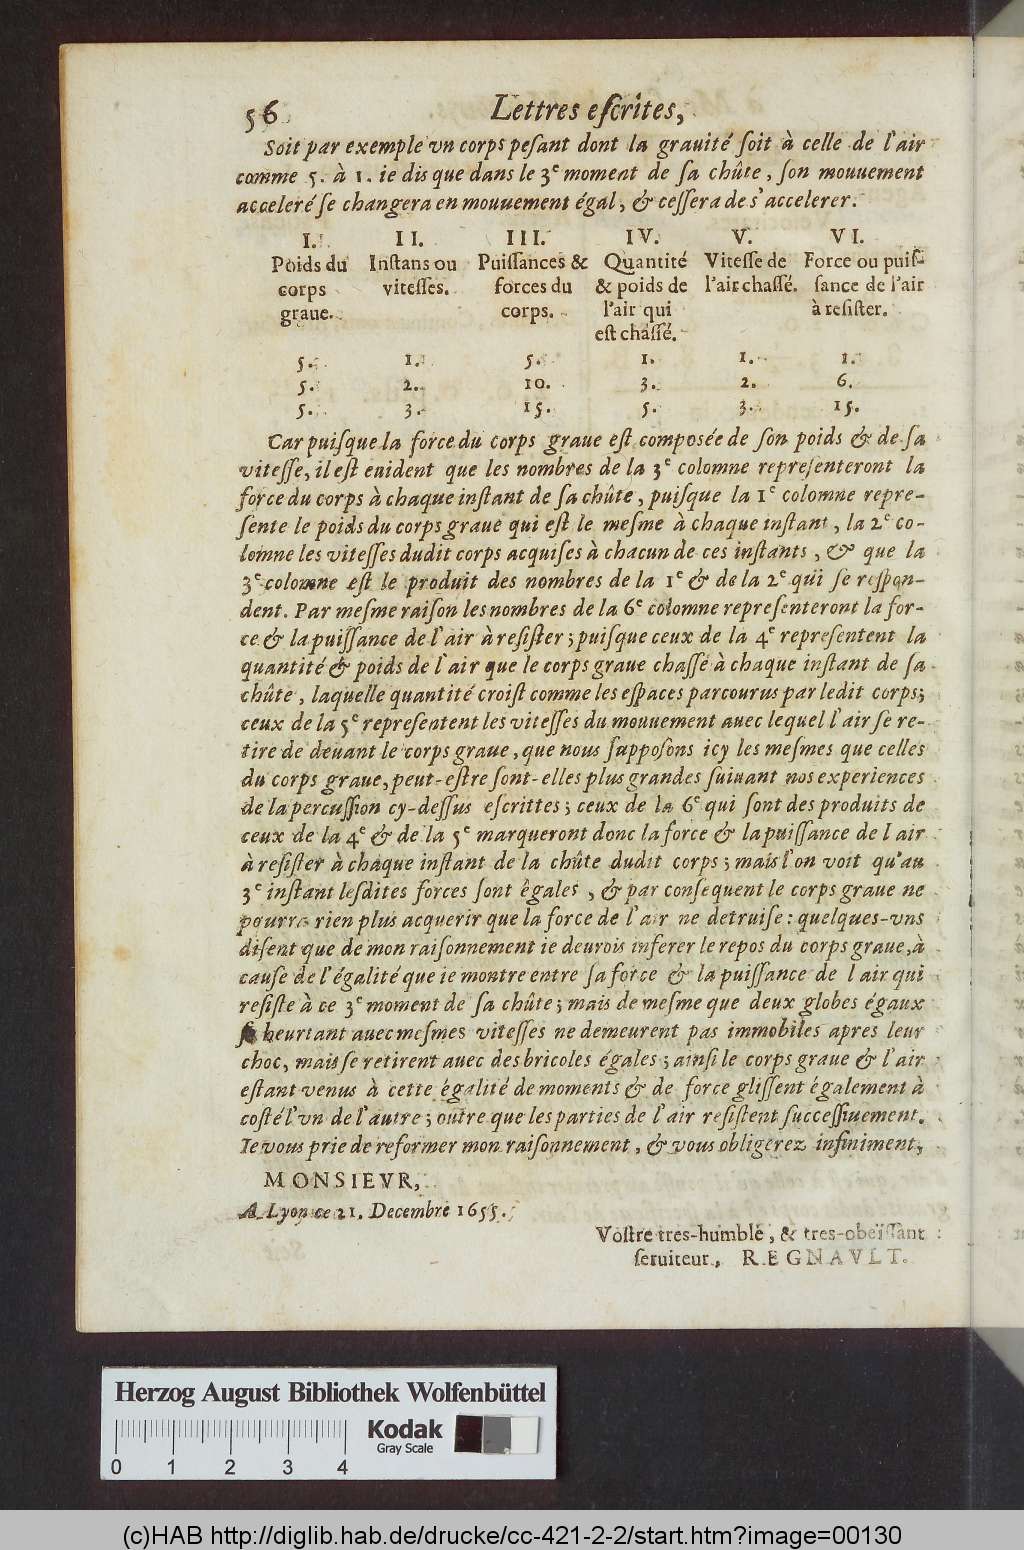 56 Lettres escrites,
Soit par exemple vn corps pesant dont la grauité soit à celle de l'air
comme 5. à 1. ie dis que dans le 3e moment de sa chûte, son mouuement
acceleré se changera en mouuement égal, & cessera de s'accelerer.
I. II. III. IV. V. VI.
Poids du Instans ou Puissances & Quantité Vitesse de Force ou puis-
corps vitesses. forces du & poids de l'air chassé. sance de l'air
graue. corps. l'air qui à resister.
est chassé.
5. 1. 5. 1. 1. 1.
5. 2. 10. 3. 2. 6.
5. 3. 15. 5. 3. 15.
Car puisque la force du corps graue est composée de son poids & de sa
vitesse, il est euident que les nombres de la 3e colomne representeront la
force du corps à chaque instant de sa chûte, puisque la 1e colomne repre-
sente le poids du corps graue qui est le mesme à chaque instant, la 2e co-
lomne les vitesses dudit corps acquises à chacun de ces instants, & que la
3e colomne est le produit des nombres de la 1e & de la 2e qui se respon-
dent. Par mesme raison les nombres de la 6e colomne representeront la for-
ce & la puissance de l'air à resister; puisque ceux de la 4e representent la
quantité & poids de l'air que le corps graue chasse à chaque instant de sa
chûte, laquelle quantité croist comme les espaces parcourus par ledit corps;
ceux de la 5e representent les vitesses du mouuement auec lequel l'air se re-
tire de deuant le corps graue, que nous supposons icy les mesmes que celles
du corps graue, peut-estre sont-elles plus grandes suiuant nos experiences
de la percussion cy-dessus escrittes; ceux de la 6e qui sont des produits de
ceux de la 4e & de la 5e marqueront donc la force & la puissance de l air
à resister à chaque instant de la chûte dudit corps; mais l'on voit qu'au
3e instant lesdites forces sont égales, & par consequent le corps graue ne
pourra rien plus acquerir que la force de l'air ne detruise: quelques-vns
disent que de mon raisonnement ie deurois inferer le repos du corps graue, à
cause de l'égalité que ie montre entre sa force & la puissance de l air qui
resiste à ce 3e moment de sa chûte; mais de mesme que deux globes égaux
se heurtant auec mesmes vitesses ne demeurent pas immobiles apres leur
choc, mais se retirent auec des bricoles égales; ainsi le corps graue & l'air
estant venus à cette égalité de moments & de force glissent également à
costé l'vn de l'autre; outre que les parties de l'air resistent successiuement.
Ie vous prie de reformer mon raisonnement, & vous obligerez infiniment,
MONSIEVR,
A Lyon ce 21. Decembre 1655.
Vostre tres-humble, & tres-obeïssant
seruiteur, REGNAVLT.
Herzog August Bibliothek Wolfenbüttel
Kodak
Gray Scale
0 1 2 3 4
(c)HAB http://diglib.hab.de/drucke/cc-421-2-2/start.htm?image=00130